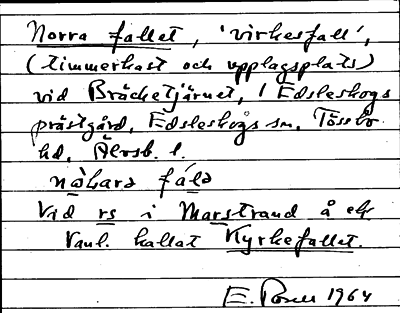 Norra fallet, 'virkesfall',
(timmerkast och upplagsplats)
vid Bräcketjärnet, i Edsleskogs
prästgård, Edsleskogs sn, Tössbo
hd, Älvsb. l.
nòhara fáls
Vid rs i Marstrand å ek
Vanl. kallat Kyrkefallet.
E. 1964